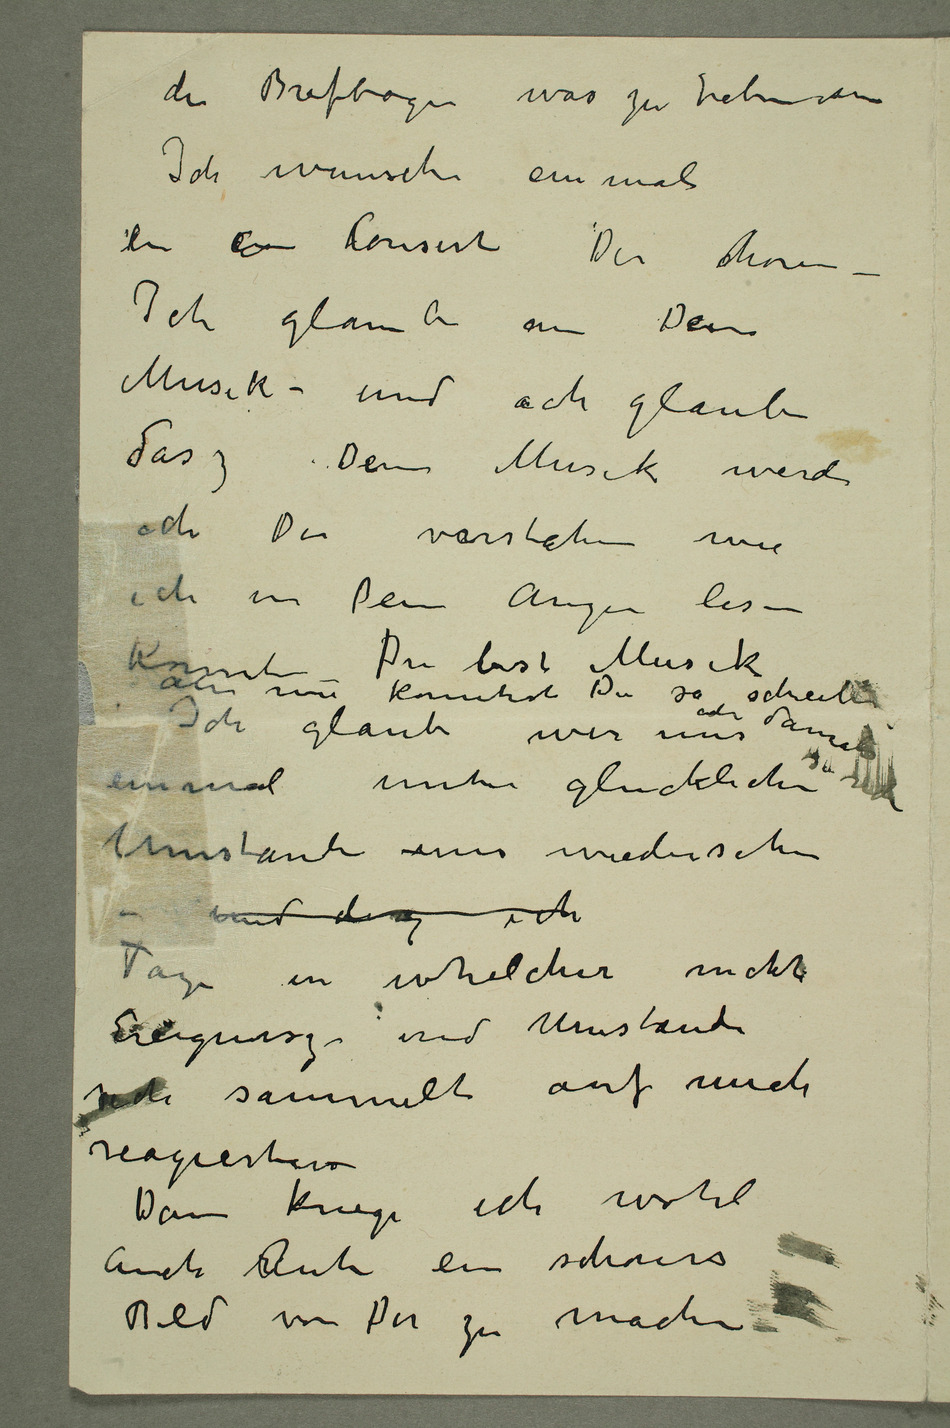 die Brefbogen was zu
Ich wunsche einmal
in ein Consert Der horen –
Ich glaube an Dein
Musik – und ich glaube
dasz Dein Musik werde
ich Die verstehen wie
ich in Dein Augen lesen
konnte Du bist Musik
aber nie konntest Du so schreiben
Ich glaube wir uns
einmal unter glucklichen
Umstande uns wiedersehen
– und dasz ich
Tage in whelcher nicht
Ereignisze und Umstande
sich sammelte auf mich
reagierten
Dann kriege ich wohl
auch Ruhe ein schönes
Bild von Dir zu machen